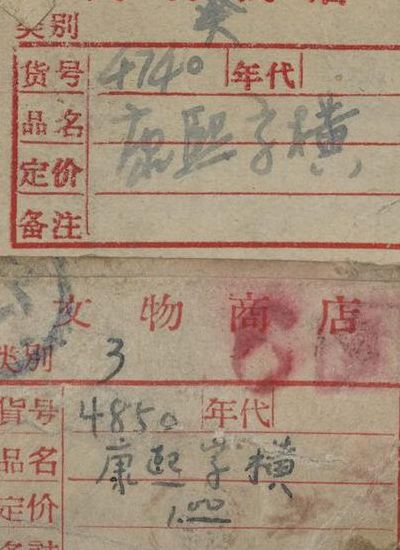 类别
货号 4740 年代
品名 康熙字横
定价
备注
文物商店
类别 3
貨号 4850 年代
品名 康熙字横
定价
备注